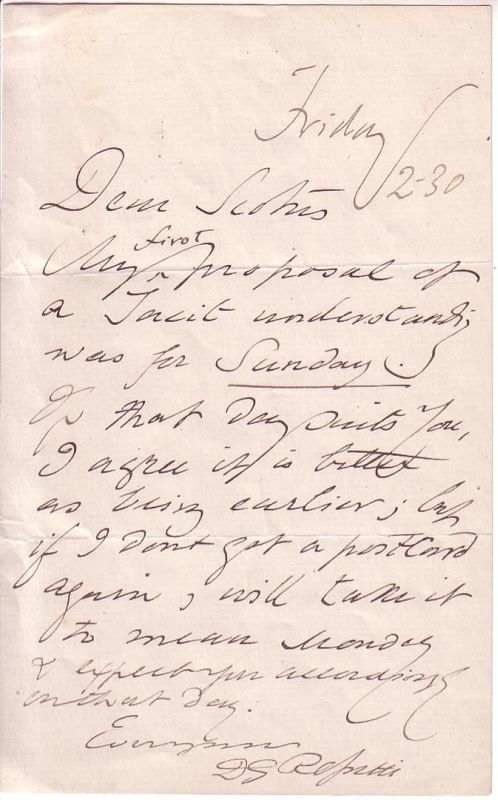 Friday
2-30
Dear Scotus
first
My ^ proposal of
a Tacit understanding
was for Sunday.
If that day suits you,
I agree it is better
as being earlier; but
if I dont get a postcard
again, will take it
to mean Monday
& expect you accordingly
on that day.
Ever yours
DG Rossetti